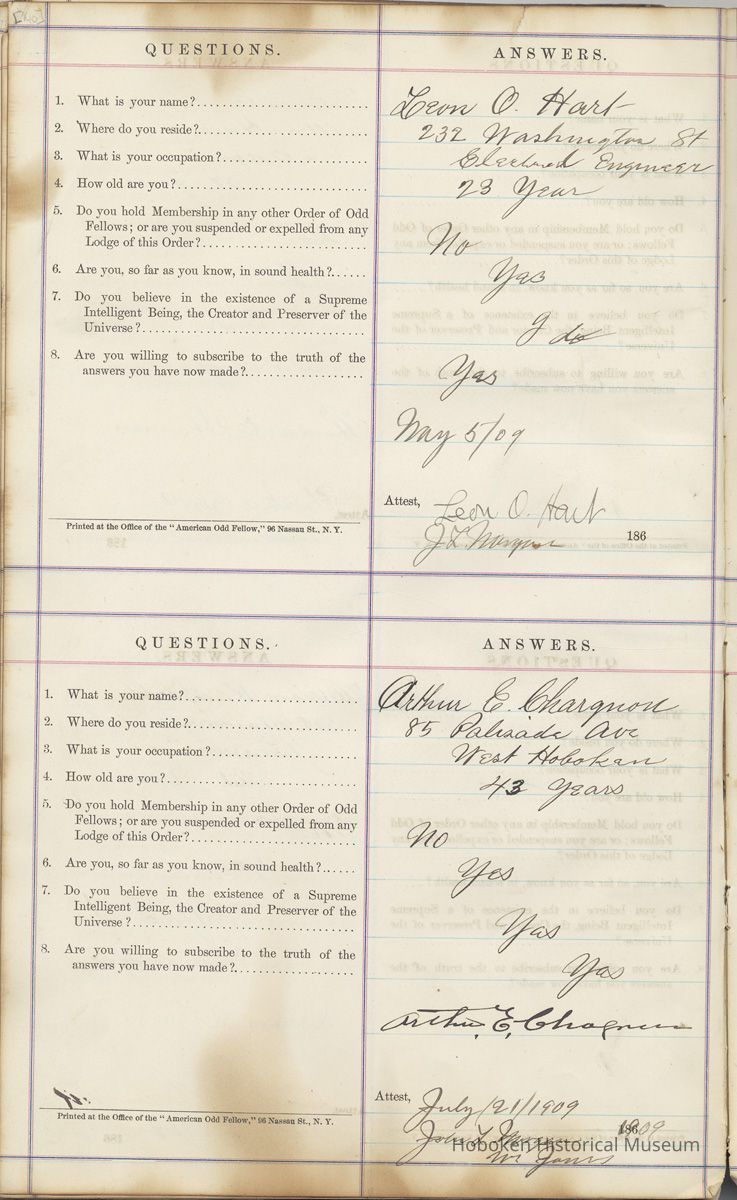 QUESTIONS.
ANSWERS.
1. What is your name?
Leon O. Hart
2. Where do you reside?
232 Washington St
3. What is your occupation?
Electrical Engineer
4. How old are you?
23 Year
5. Do you hold Membership in any other Order of Odd
Fellows; or are you suspended or expelled from any
Lodge of this Order?
No
6. Are, you, so far as you know, in sound health?
Yas
7. Do you believe in the existence of a Supreme
Intelligent Being, the Creator and Preserver of the
Universe?
I do
8. Are you willing to subscribe to the truth of the
answers you have now made?
Yas
May 5/09
Attest,
Leon O. Hart
186
Printed at the Office of the "American Odd Fellow," 96 Nassau St., N. Y.
QUESTIONS.
ANSWERS.
1. What is your name?
Arthur E. Chargnon
2. Where do you reside?
85 Palisade Ave
3. What is your occupation?
West Hoboken
4. How old are you?
43 years
5. Do you hold Membership in any other Order of Odd
Fellows; or are you suspended or expelled from any
Lodge of this Order?
No
6. Are, you, so far as you know, in sound health?
Yes
7. Do you believe in the existence of a Supreme
Intelligent Being, the Creator and Preserver of the
Universe?
Yas
8. Are you willing to subscribe to the truth of the
answers you have now made?
Yas
Arthur E. Chagnon
Attest,
July/21/1909
186
1909
John
Printed at the Office of the "American Odd Fellow," 96 Nassau St., N. Y.
Hoboken Historical Museum